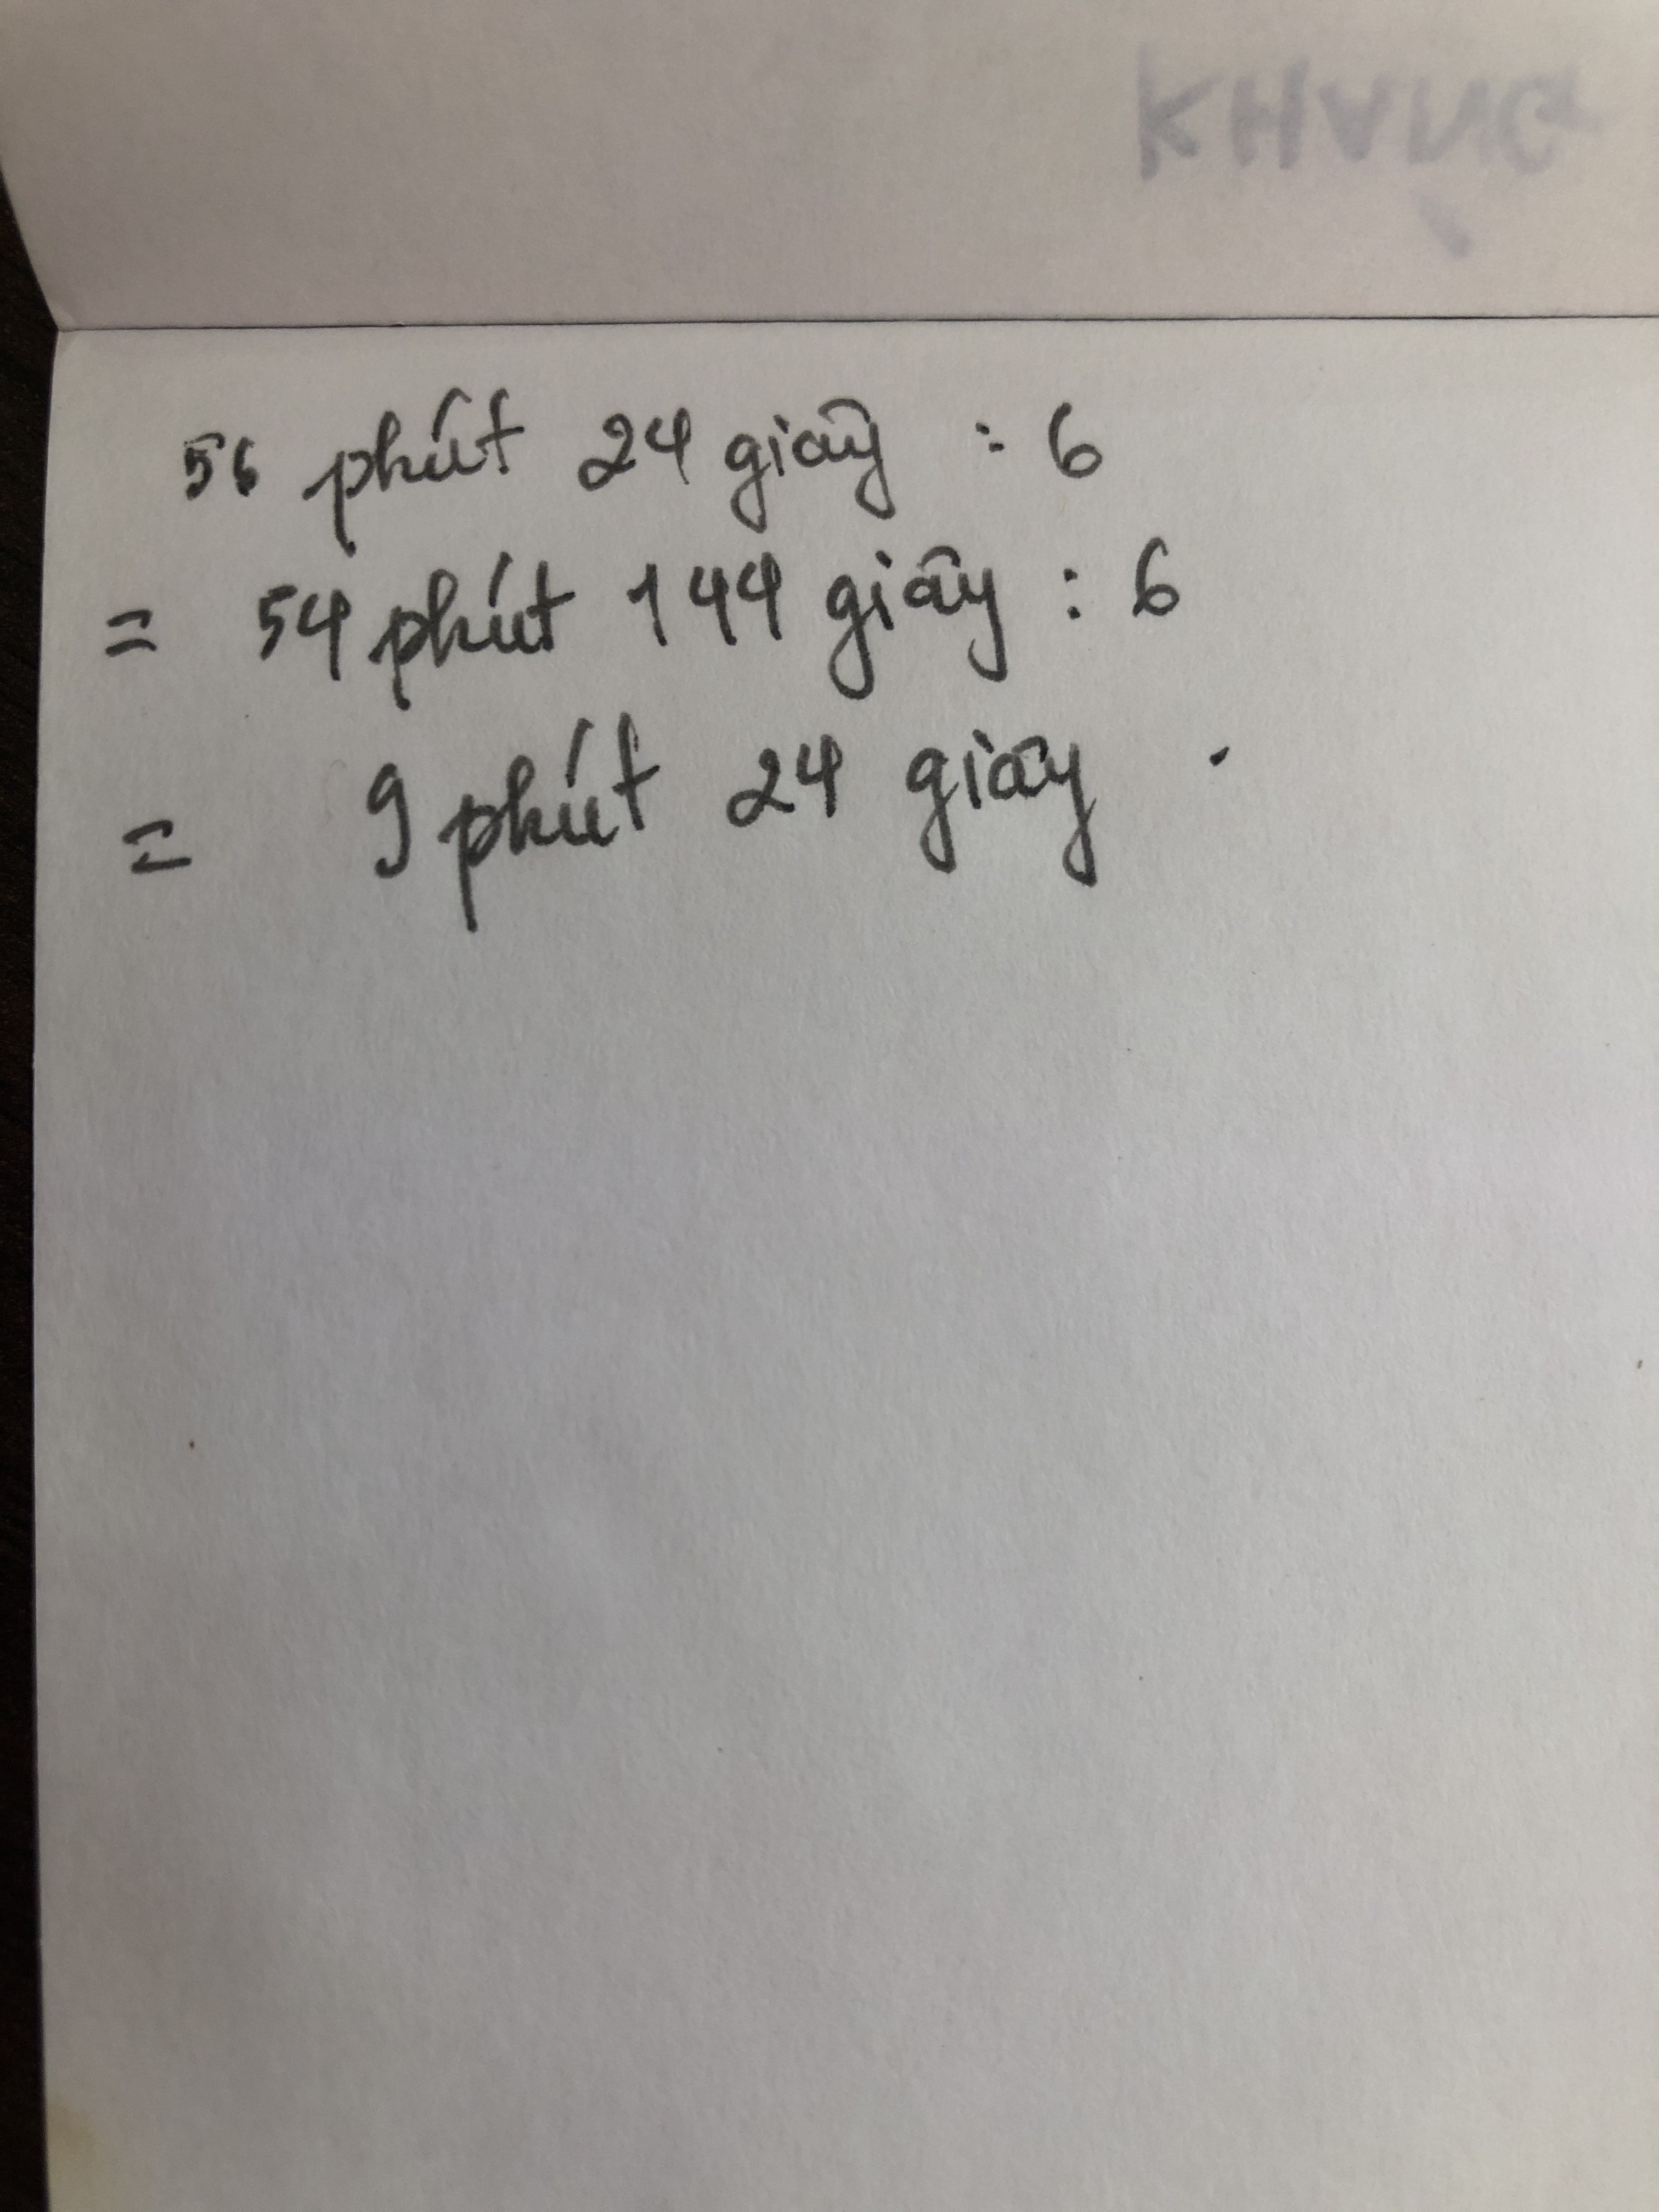 KHANG
56 phút 24 giây : 6
= 54 phút 144 giây : 6
= 9 phút 24 giây .